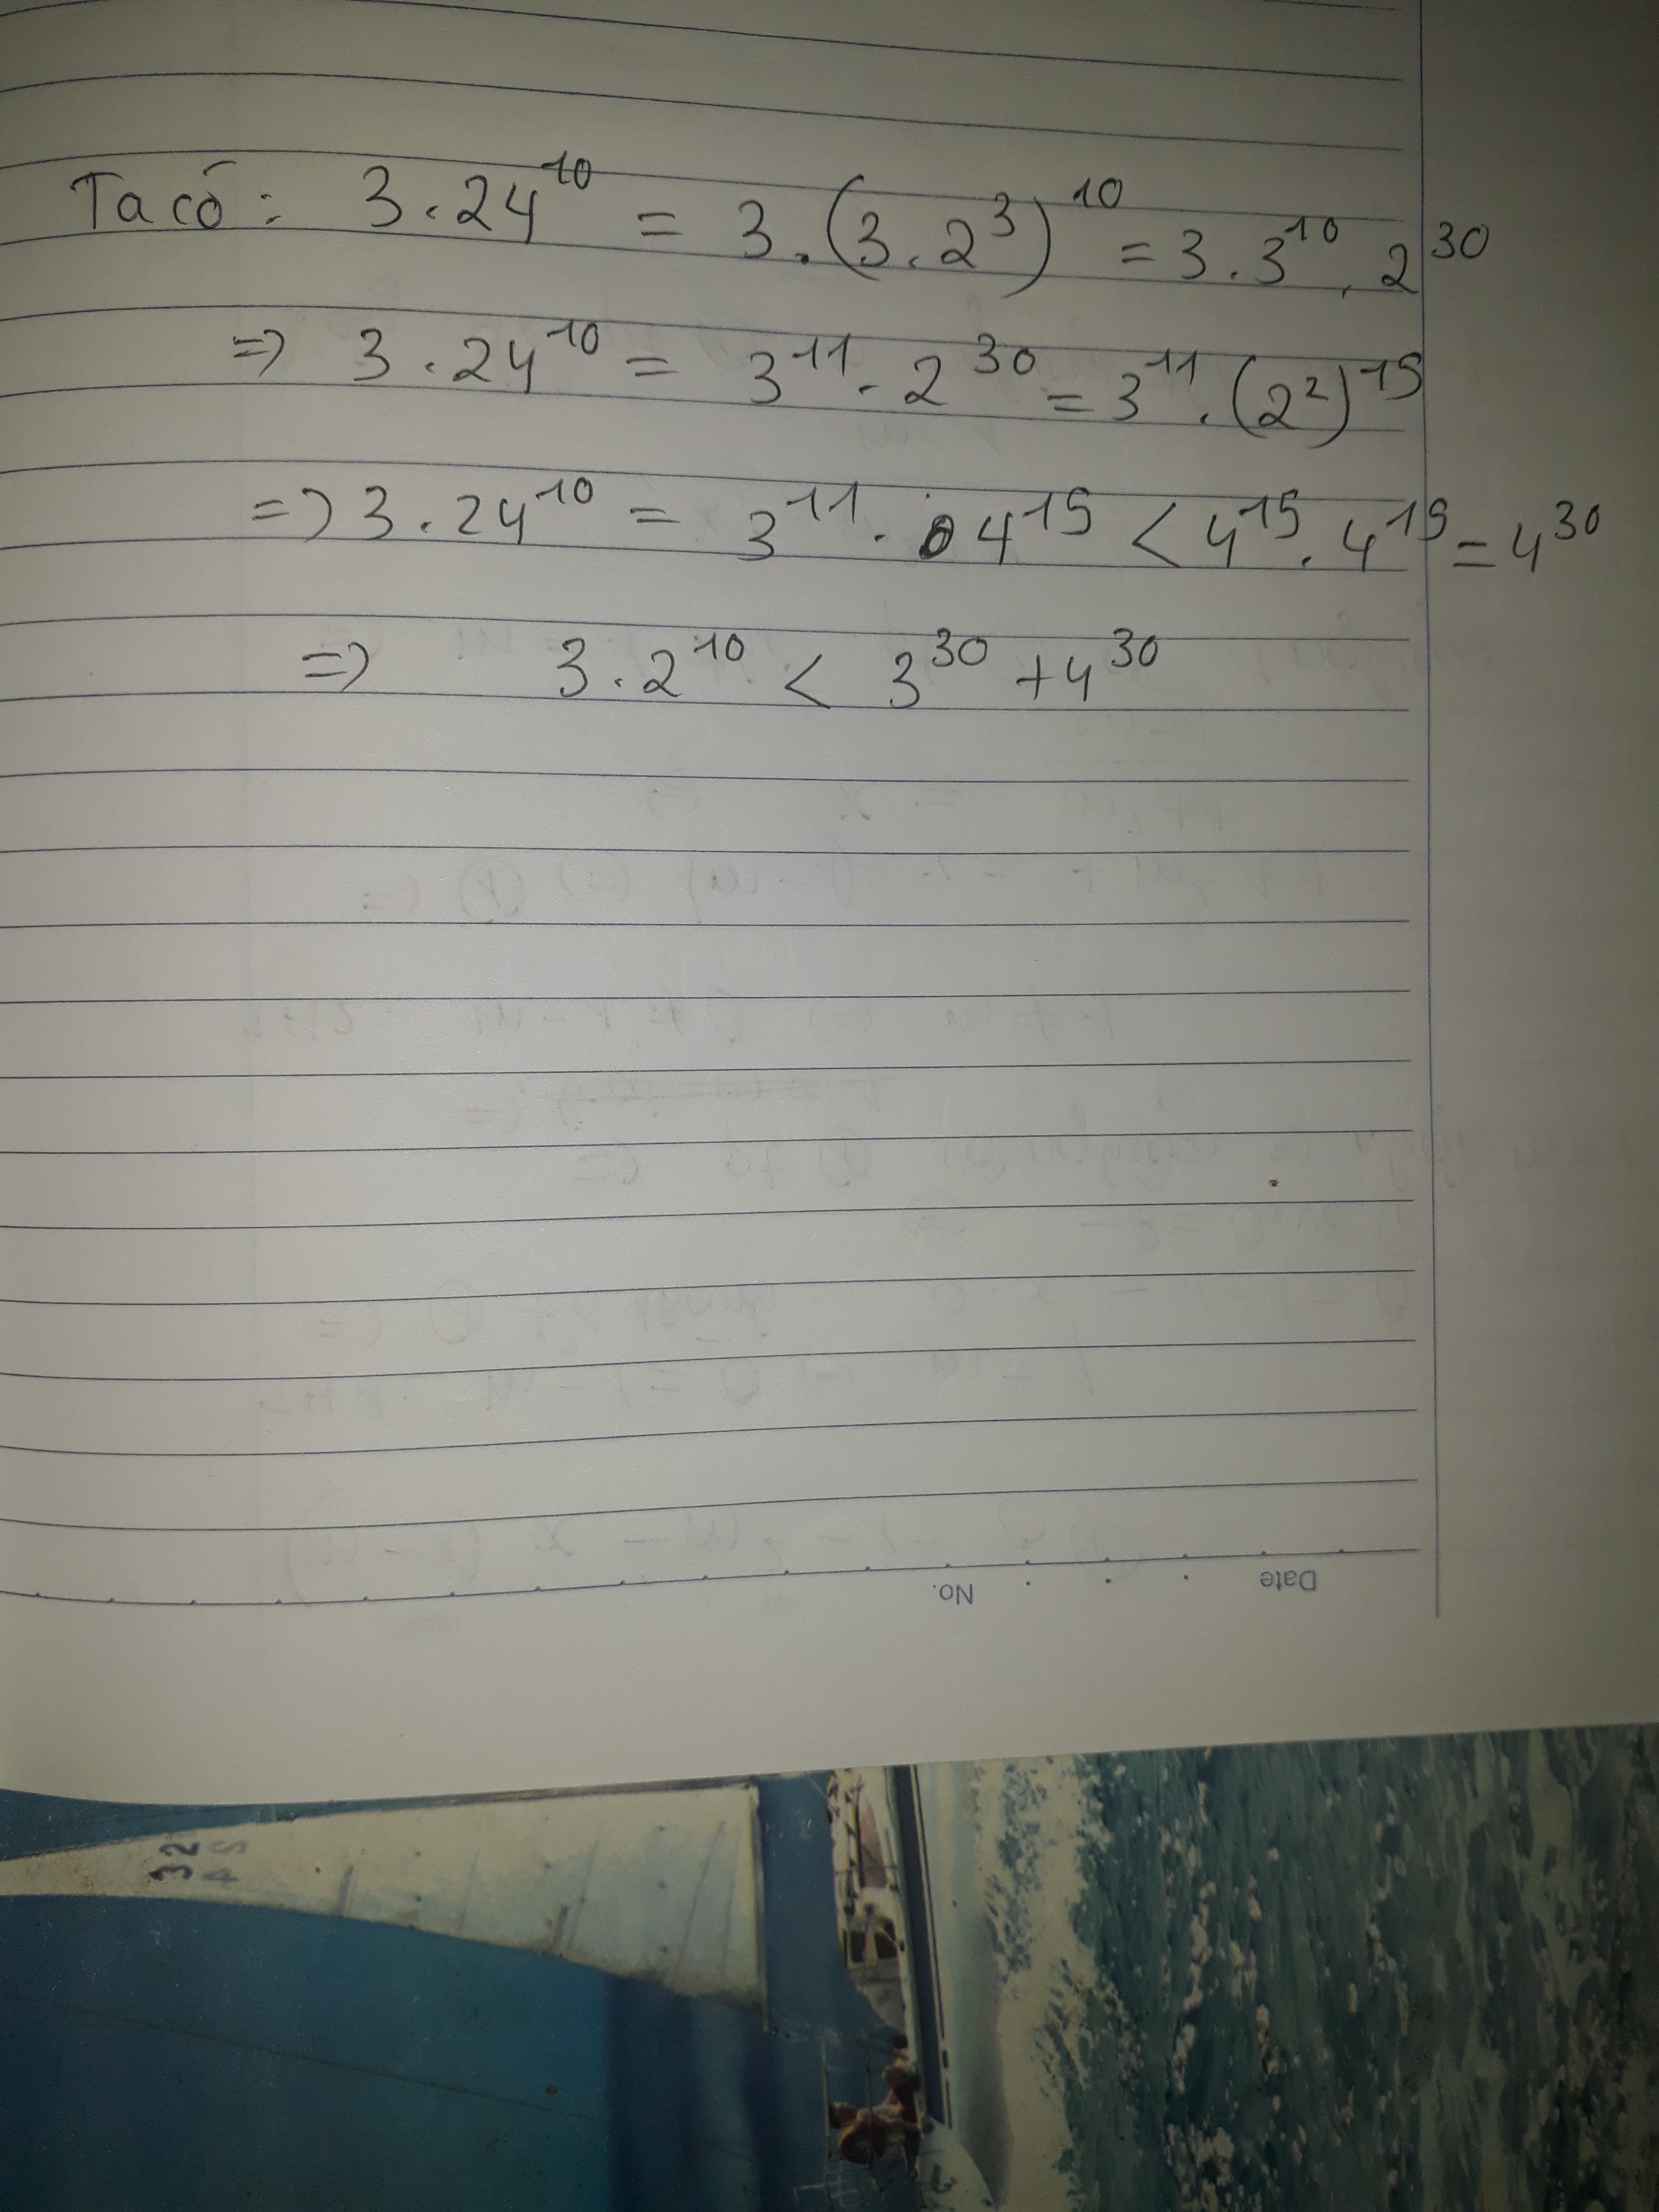 Ta có: 3.24^10 = 3.(3.2^3)^10 = 3.3^10.2^30
=> 3.24^10 = 3^11.2^30 = 3^11.(2^2)^15
=> 3.24^10 = 3^11.4^15 < 4^15.4^15 = 4^30
=> 3.2^10 < 3^30 + 4^30
Date
No.
32